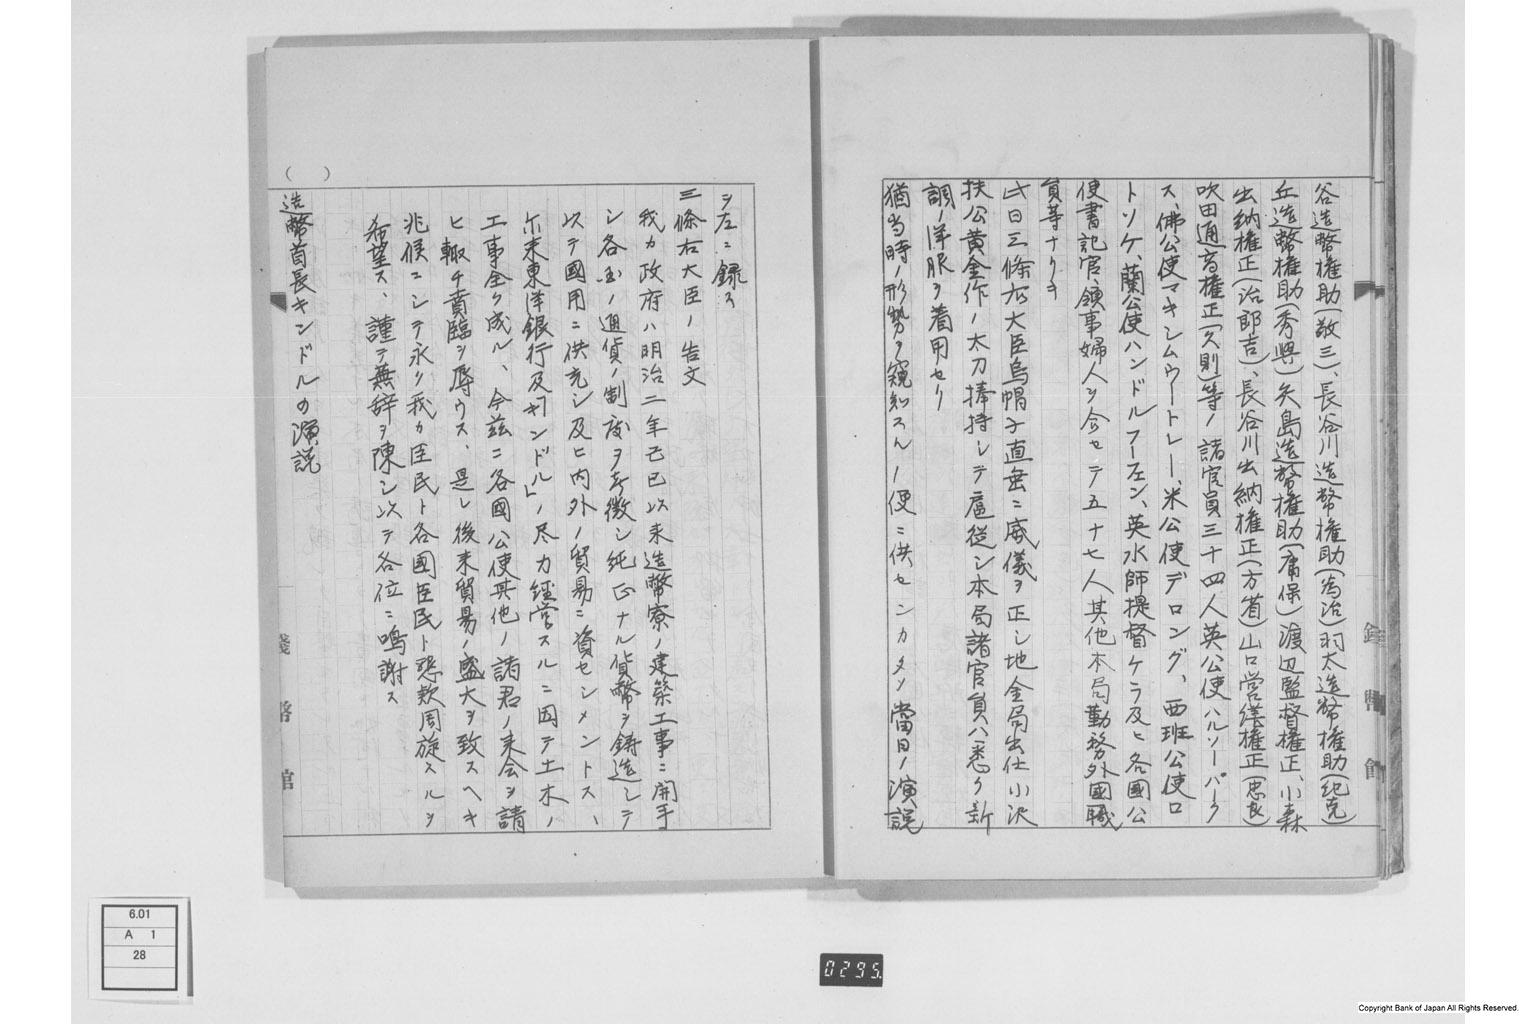 谷造幣権助(敬三)、長谷川造幣権助(為治)羽太造幣権助(紀克)
丘造幣権助(秀興)矢島造幣権助(庸保)渡辺監督権正、小森
出納権正(治郎吉)、長谷川出納権正(方省)山口営繕権正(忠良)
吹田通商権正(久則)等ノ諸官員三十四人英公使ハルソーパーク
ス、佛公使マキシムウートレー、米公使デロング、西班公使ロ
トリケ、蘭公使ハンドルフーエン、英水師提督ケラ及ヒ各國公
使書記官、領事婦人ヲ合セテ五十七人其他本局勤務外国職
員等ナリキ
此日三條右大臣烏帽子直垂ニ威儀ヲ正シ地金局出仕小沢
扶公黄金作ノ太刀捧持シテ扈従シ本局諸官員ハ悉ク新
調ノ洋服ヲ着用セリ
猶当時ノ形勢ヲ窺知スルノ便ニ供センカタメ當日ノ演説
ヲ左ニ録ス
三條右大臣ノ告文
我カ政府ハ明治二年己巳以来造幣寮ノ建築工事ニ開手
シ各国ノ通貨ノ制度ヲ考徴シ純正ナル貨幣ヲ鋳造シテ
以テ國用ニ供充シ及ヒ内外ノ貿易ニ資センメントス、
尓来東洋銀行及「キンドル」ノ尽力経営スルニ因テ土木ノ
工事全ク成ル、今茲ニ各國公使其他ノ諸君ノ来会ヲ請
ヒ輙チ賁臨ヲ辱ウス、是レ後来貿易ノ盛大ヲ致スヘキ
兆候ニシテ永ク我カ臣民ト各國臣民ト懇欵周旋スルヲ
希望ス、謹テ蕪辞ヲ陳シ以テ各位ニ鳴謝ス
造幣首長キンドルの演説
( )
錢幣館
錢幣館
6.01
A 1
28
0295.
Copyright Bank of Japan All Rights Reserved.